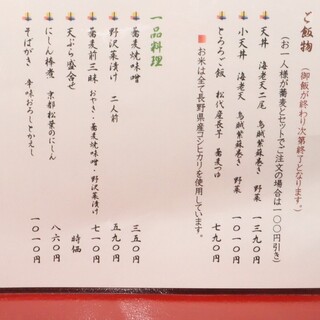 ご飯物
（御飯が終わり次第終了となります。）
（お一人様が蕎麦とセットでご注文の場合は一〇〇円引き）
天丼 海老天二尾 烏賊紫蘇巻き 野菜 一三九〇円
小天丼 海老天 烏賊紫蘇巻き 野菜 一〇一〇円
とろろご飯 松代産長芋 蕎麦つゆ 七九〇円
お米は全て長野県産コシヒカリを使用しています。
一品料理
蕎麦焼味噌 三五〇円
野沢菜漬け 二人前 五九〇円
蕎麦前三昧 おやき・蕎麦焼味噌・野沢菜漬け 七一〇円
天ぷら盛合せ 時価
にしん棒煮 京都松葉のにしん 八六〇円
そばがき 辛味おろしとかえし 一〇一〇円